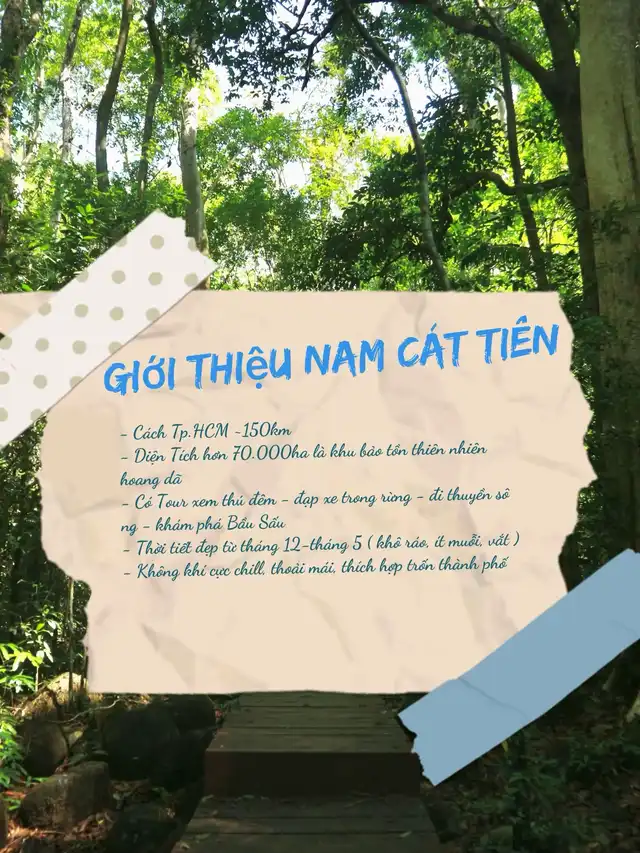 GIỚI THIỆU NAM CÁT TIÊN
- Cách Tp.HCM ~150km
- Diện Tích hơn 70.000ha là khu bảo tồn thiên nhiên
hoang dã
- Có Tour xem thú đêm - đạp xe trong rừng - đi thuyền sô
ng - khám phá Bầu Sấu
- Thời tiết đẹp từ tháng 12-tháng 5 ( khô ráo, ít muỗi, vắt )
- Không khí cực chill, thoải mái, thích hợp trốn thành phố